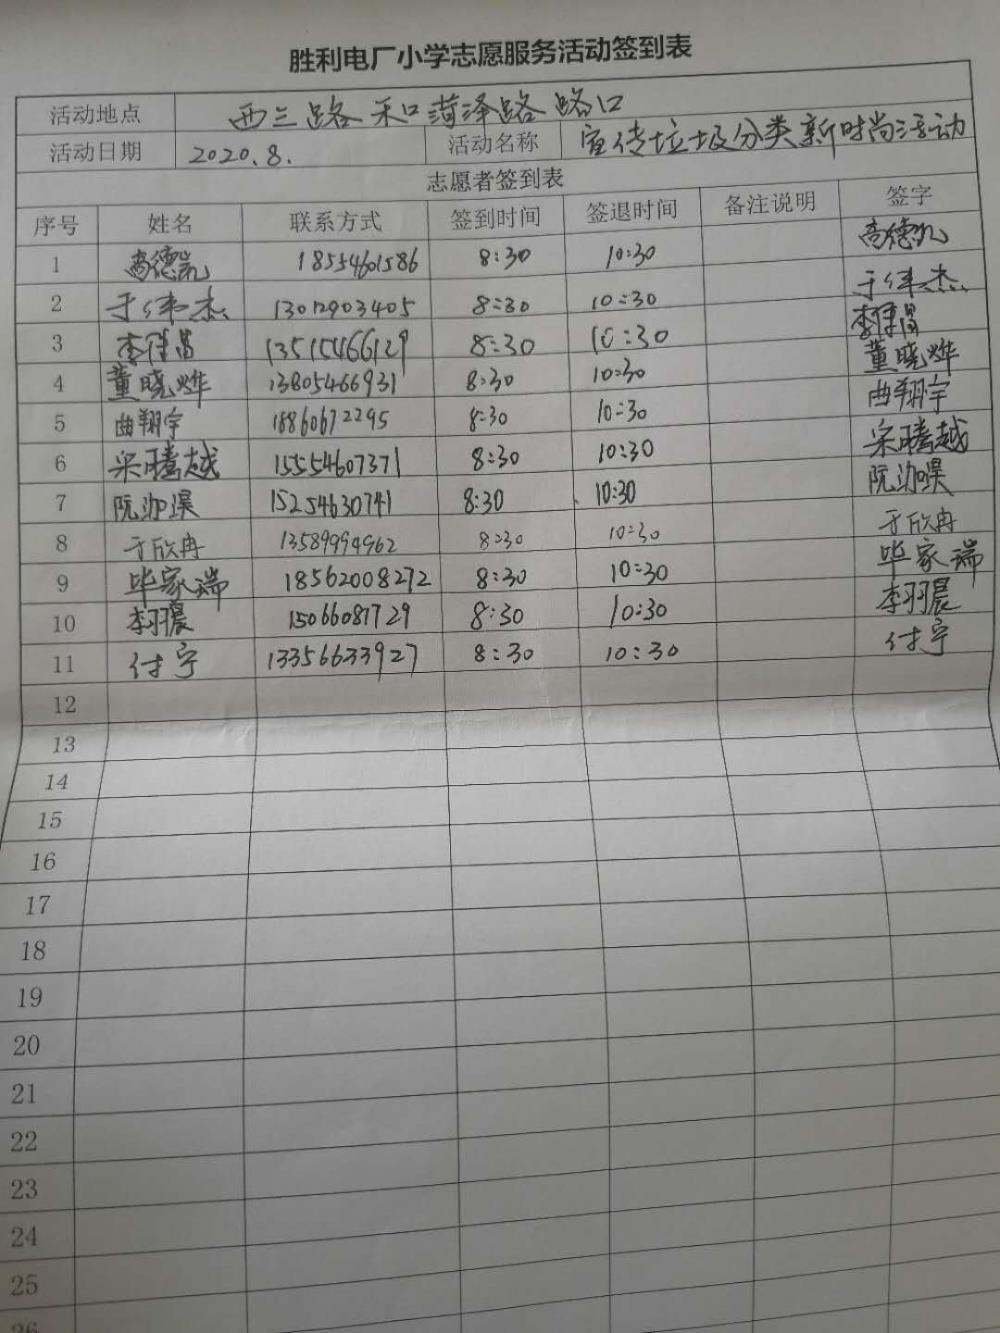 胜利电厂小学志愿服务活动签到表
活动地点 西三路和菏泽路路口
活动日期 2020.8. 活动名称 宣传垃圾分类新时尚活动
志愿者签到表
序号 姓名 联系方式 签到时间 签退时间 备注说明 签字
1 高德凯 18554601586 8:30 10:30 高德凯
2 于纬杰 13012903405 8:30 10:30 于纬杰
3 李倬昌 13515466129 8:30 10:30 李倬昌
4 董晓烨 13805466931 8:30 10:30 董晓烨
5 曲翔宇 18860672295 8:30 10:30 曲翔宇
6 宋腾越 15554607371 8:30 10:30 宋腾越
7 阮泇淏 15254630741 8:30 10:30 阮泇淏
8 于欣冉 13589994962 8:30 10:30 于欣冉
9 毕家瑞 18562008272 8:30 10:30 毕家瑞
10 李羽晨 15066081729 8:30 10:30 李羽晨
11 付宁 13356633927 8:30 10:30 付宁
12
13
14
15
16
17
18
19
20
21
22
23
24
25
26